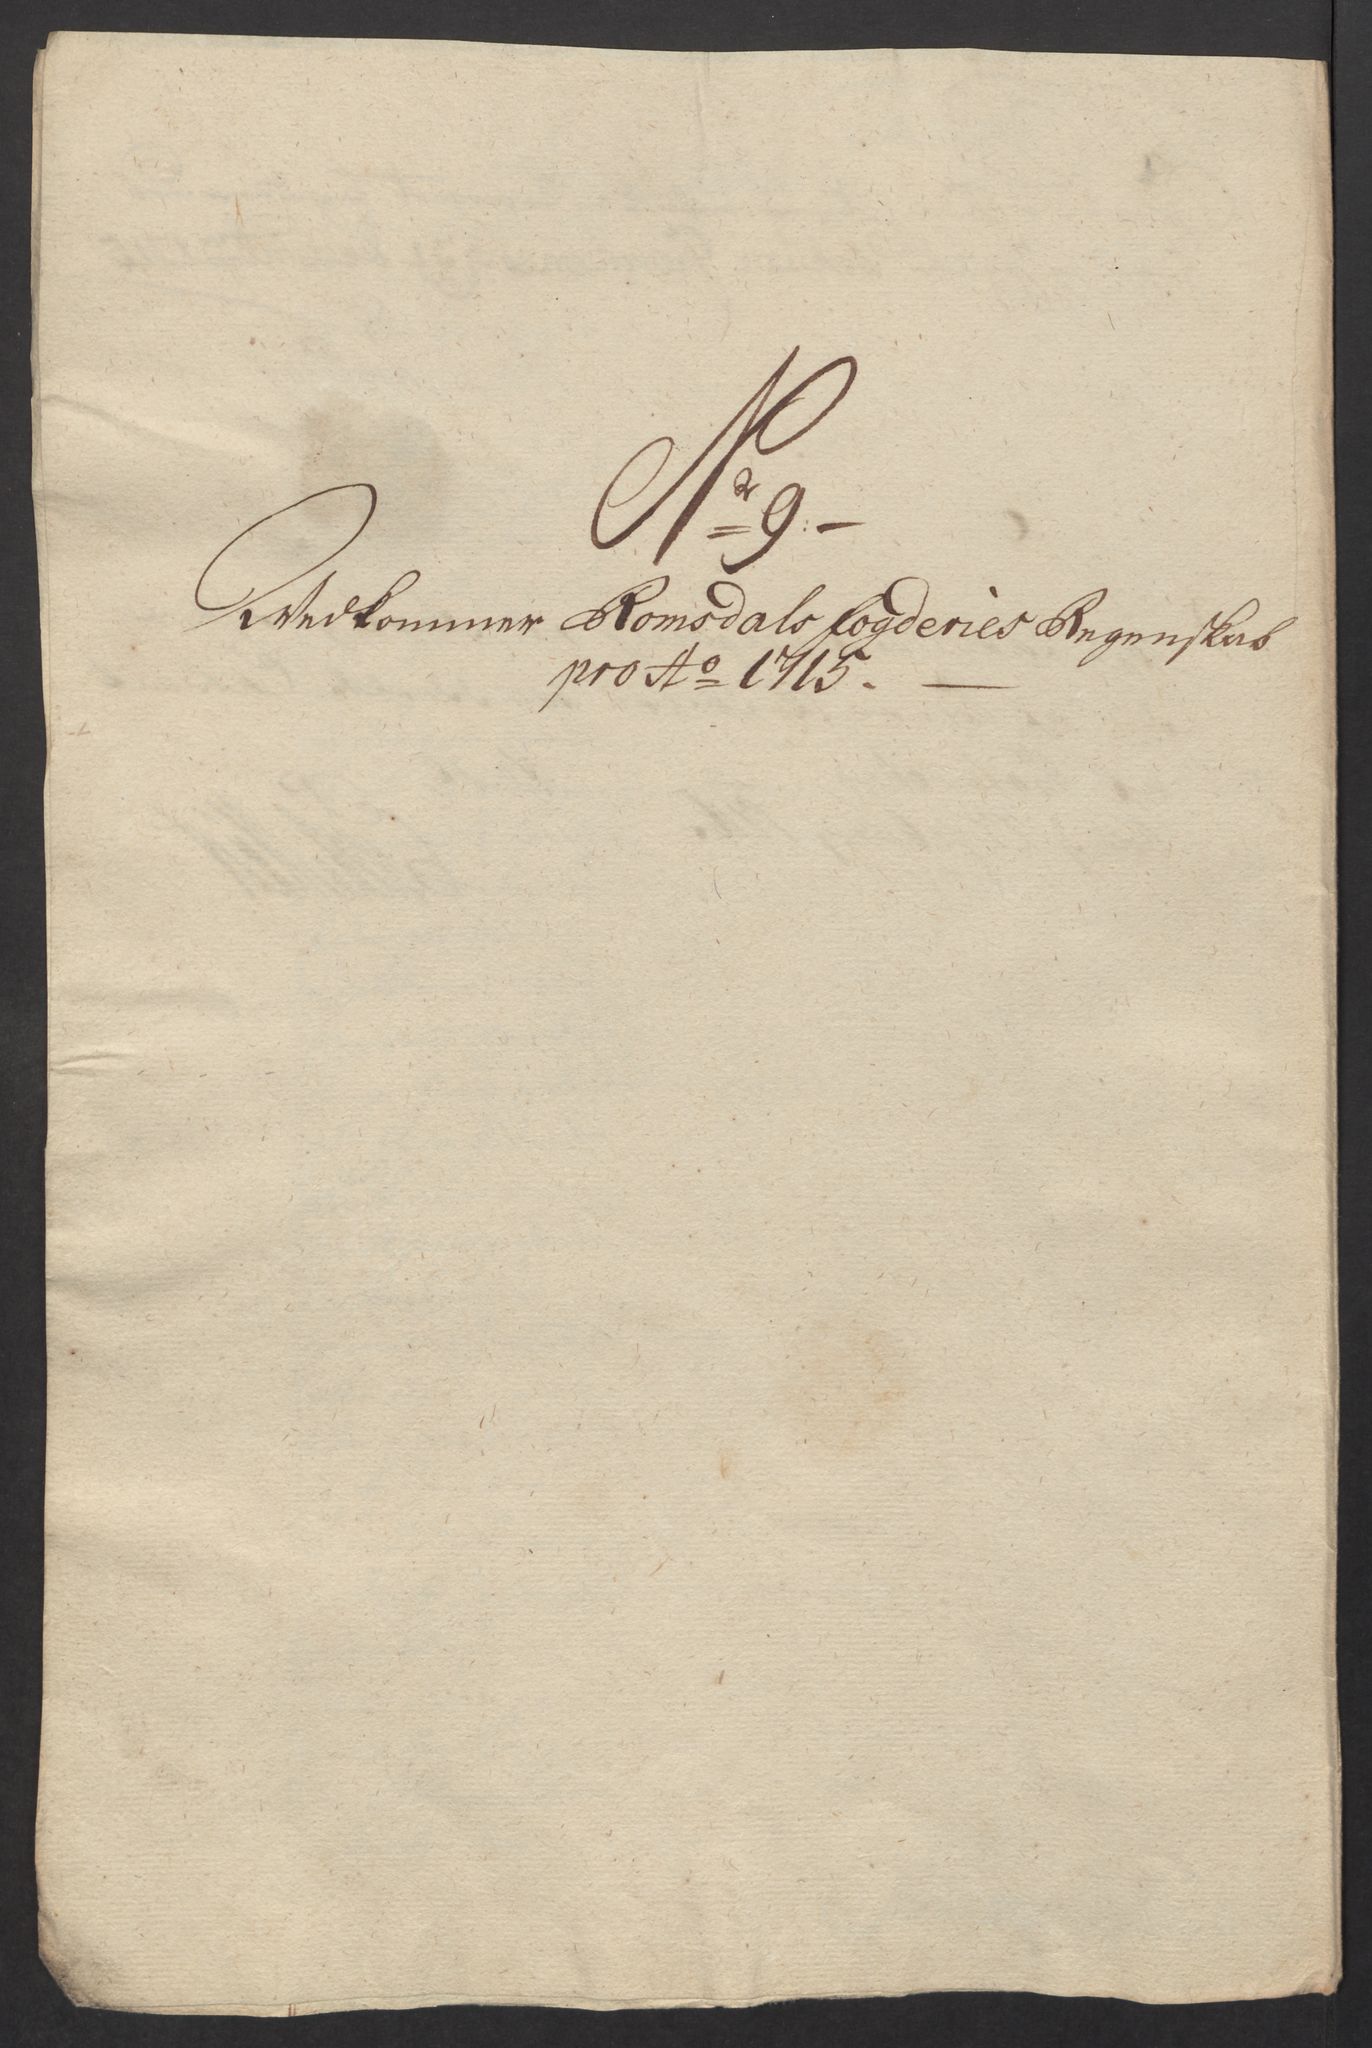 Nr 9. –
Vedkommer Romsdals fogderies Regenskab
pro Ao 1715. —